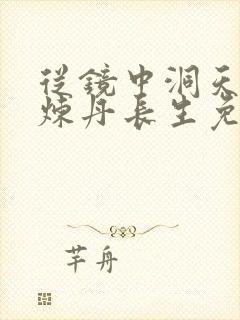 從鏡中洞天
煉丹長生免
芊舟